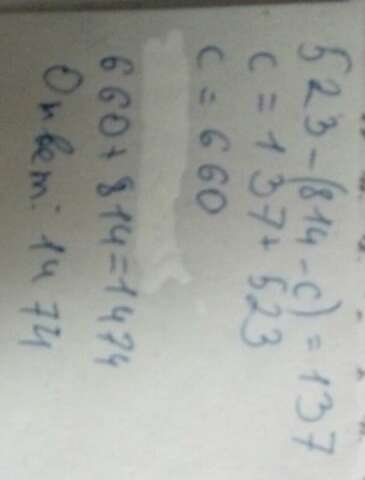 523 - (814 - c) = 137
c = 137 + 523
c = 660
660 + 814 = 1474
Ответ: 1474